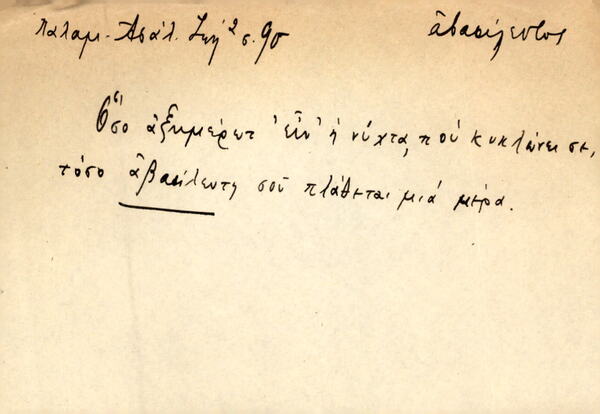 Παλαμ. Ἀσάλ. Ζωή² σ. 95 ἀβασίλευτος
Ὅσο ἀξημέρωτ' εἶν' ἡ νύχτα, ποὺ κυκλώνει σε,
τόσο ἀβασίλευτη σοῦ πλάθεται μιά μέρα.